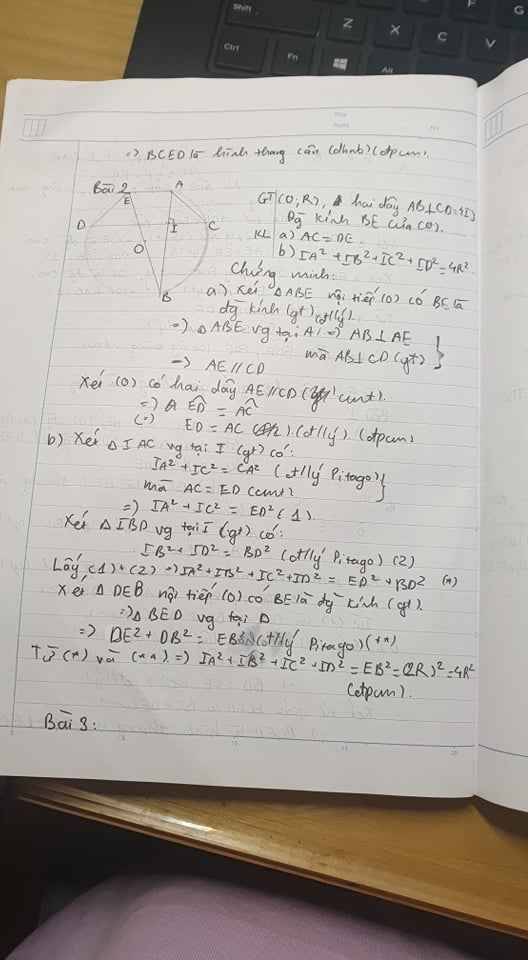 =) BCED là hình thang cân (dhnb) (đpcm).
Bài 2
E A
D I C
O
B
GT (O;R), hai dây AB⊥CD={I}
Đg kính BE của (O).
KL a) AC=DE
b) IA²+IB²+IC²+ID²=4R²
Chứng minh:
a) Xét △ABE nội tiếp (O) có BE là
đg kính (gt) (đ/lý).
=) △ABE vg tại A =) AB⊥AE
mà AB⊥CD (gt) }
=) AE//CD
Xét (O) có hai dây AE//CD (cmt).
=) ED = AC
(=) ED = AC (đ/lý) (đpcm)
b) Xét △IAC vg tại I (gt) có:
IA²+IC²=CA² (đ/lý Pitago) }
mà AC=ED (cmt)
=) IA²+IC²=ED² (1).
Xét △IBD vg tại I (gt) có:
IB²+ID²=BD² (đ/lý Pitago) (2)
Lấy (1)+(2) =) IA²+IB²+IC²+ID²=ED²+BD² (*)
Xét △DEB nội tiếp (O) có BE là đg kính (gt).
=) △BED vg tại D
=) DE²+DB²=EB² (đ/lý Pitago) (**)
Từ (*) và (**) =) IA²+IB²+IC²+ID²=EB²=(2R)²=4R²
(đpcm).
Bài 3:
Shift
Z
X
C
V
F
Ctrl
Fn
Alt